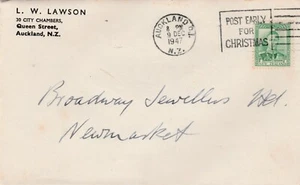 L. W. LAWSON
30 CITY CHAMBERS,
Queen Street,
Auckland, N.Z.
AUCKLAND
9 DEC
1947
N.Z.
POST EARLY
FOR
CHRISTMAS
Broadway Jewellers Ltd.
Newmarket